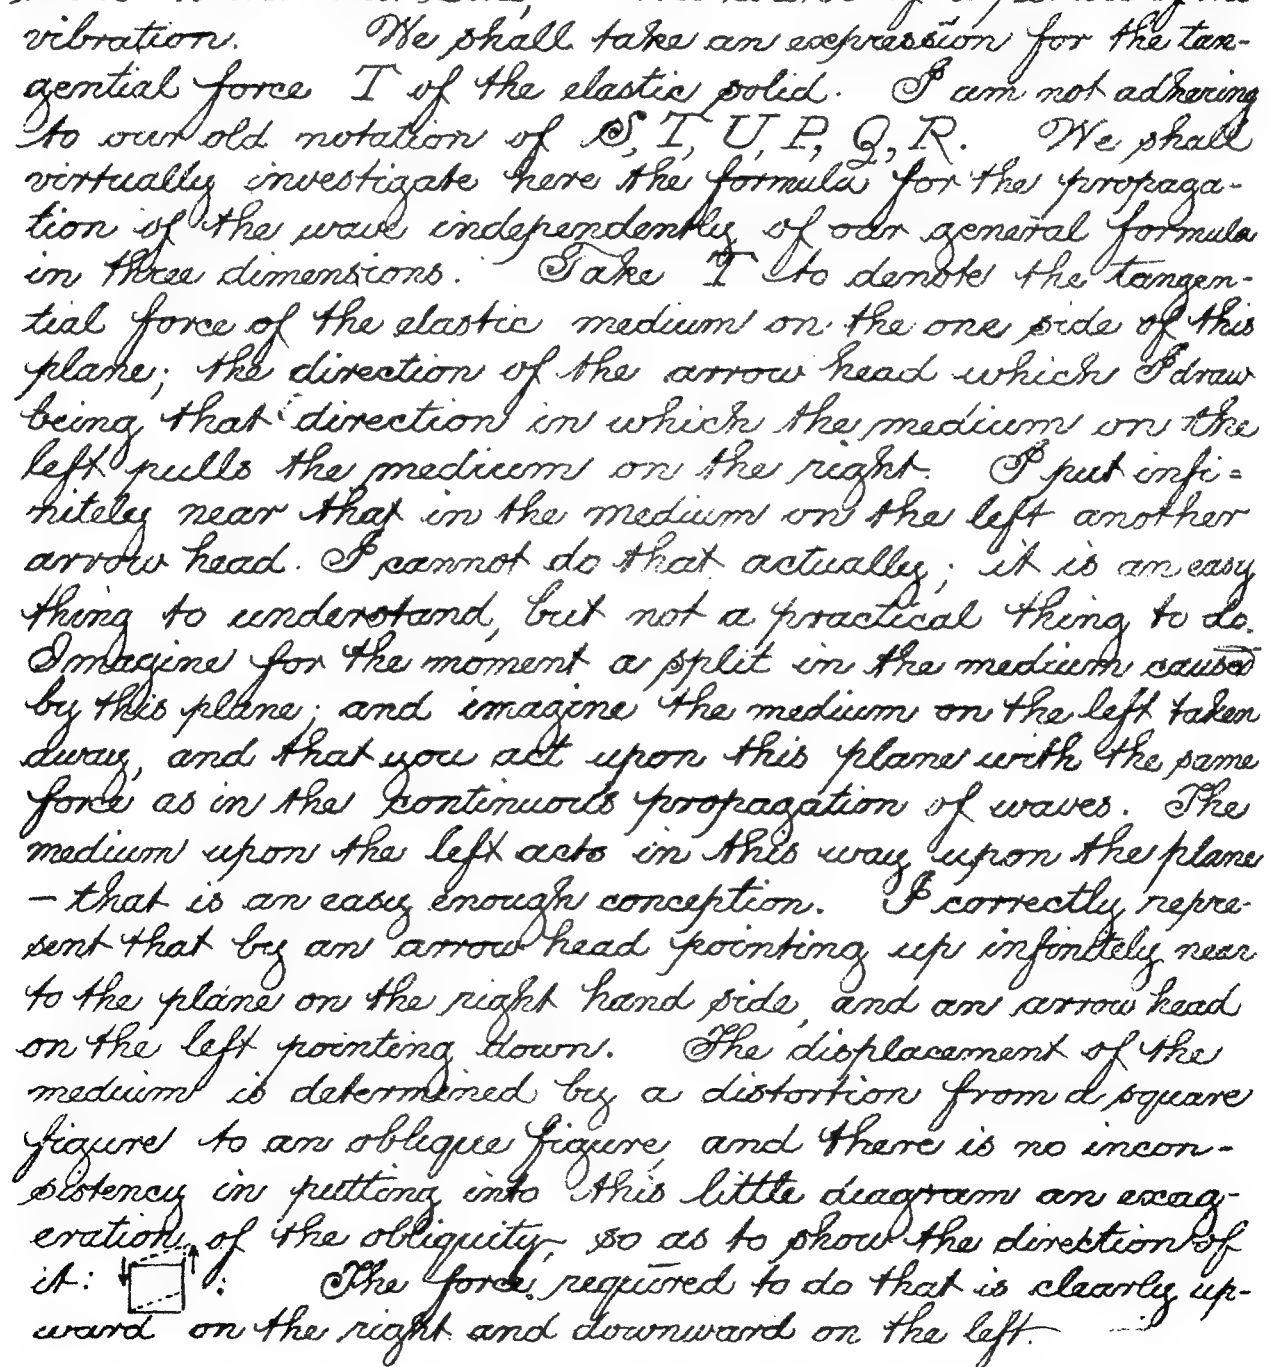 vibration. We shall take an expression for the tan-
gential force T of the elastic solid. I am not adhering
to our old notation of S, T, U, P, Q, R. We shall
virtually investigate here the formula for the propaga-
tion of the wave independently of our general formula
in three dimensions. Take T to denote the tangen-
tial force of the elastic medium on the one side of this
plane; the direction of the arrow head which I draw
being that direction in which the medium on the
left pulls the medium on the right. I put infi=
nitely near that in the medium on the left another
arrow head. I cannot do that actually; it is an easy
thing to understand, but not a practical thing to do.
Imagine for the moment a split in the medium caused
by this plane; and imagine the medium on the left taken
away, and that you act upon this plane with the same
force as in the continuous propagation of waves. The
medium upon the left acts in this way upon the plane
— that is an easy enough conception. I correctly repre-
sent that by an arrow head pointing up infinitely near
to the plane on the right hand side, and an arrow head
on the left pointing down. The displacement of the
medium is determined by a distortion from a square
figure to an oblique figure, and there is no incon-
sistency in putting into this little diagram an exag-
eration of the obliquity, so as to show the direction of
it: : The force required to do that is clearly up-
ward on the right and downward on the left.